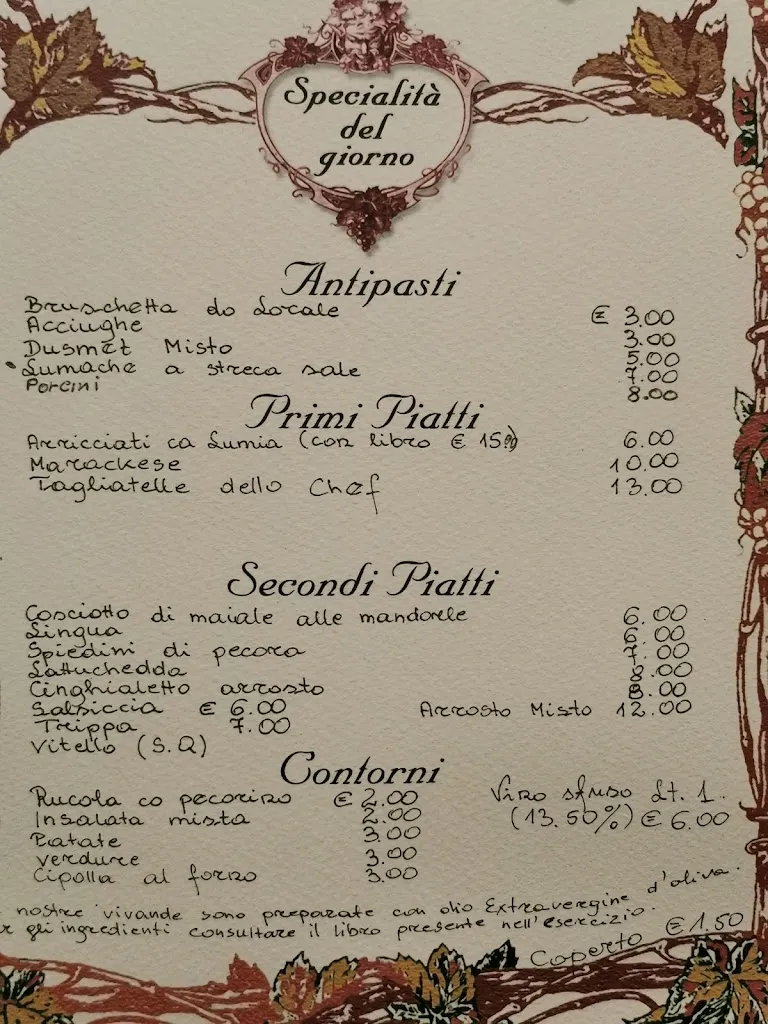 Specialità
del
giorno
Antipasti
Bruschetta do Locale € 3.00
Acciughe 3.00
Dusmet Misto 5.00
Lumache a streca sale 7.00
Porcini 8.00
Primi Piatti
Arricciati ca Lumia (con libro € 15%) 6.00
Marackese 10.00
Tagliatelle dello Chef 13.00
Secondi Piatti
Cosciotto di maiale alle mandorle 6.00
Lingua 6.00
Spiedini di pecora 7.00
Lattuchedda 8.00
Cinghialetto arrosto 8.00
Salsiccia € 6.00 Arrosto Misto 12.00
Trippa 7.00
Vitello (S.Q)
Contorni
Rucola co pecorino € 2.00 Vino sfuso Lt. 1.
Insalata mista 2.00 (13.50%) € 6.00
Patate 3.00
verdure 3.00
Cipolla al forno 3.00
nostre vivande sono preparate con olio Extravergine d'oliva.
gli ingredienti consultare il libro presente nell'esercizio.
Coperto € 1.50